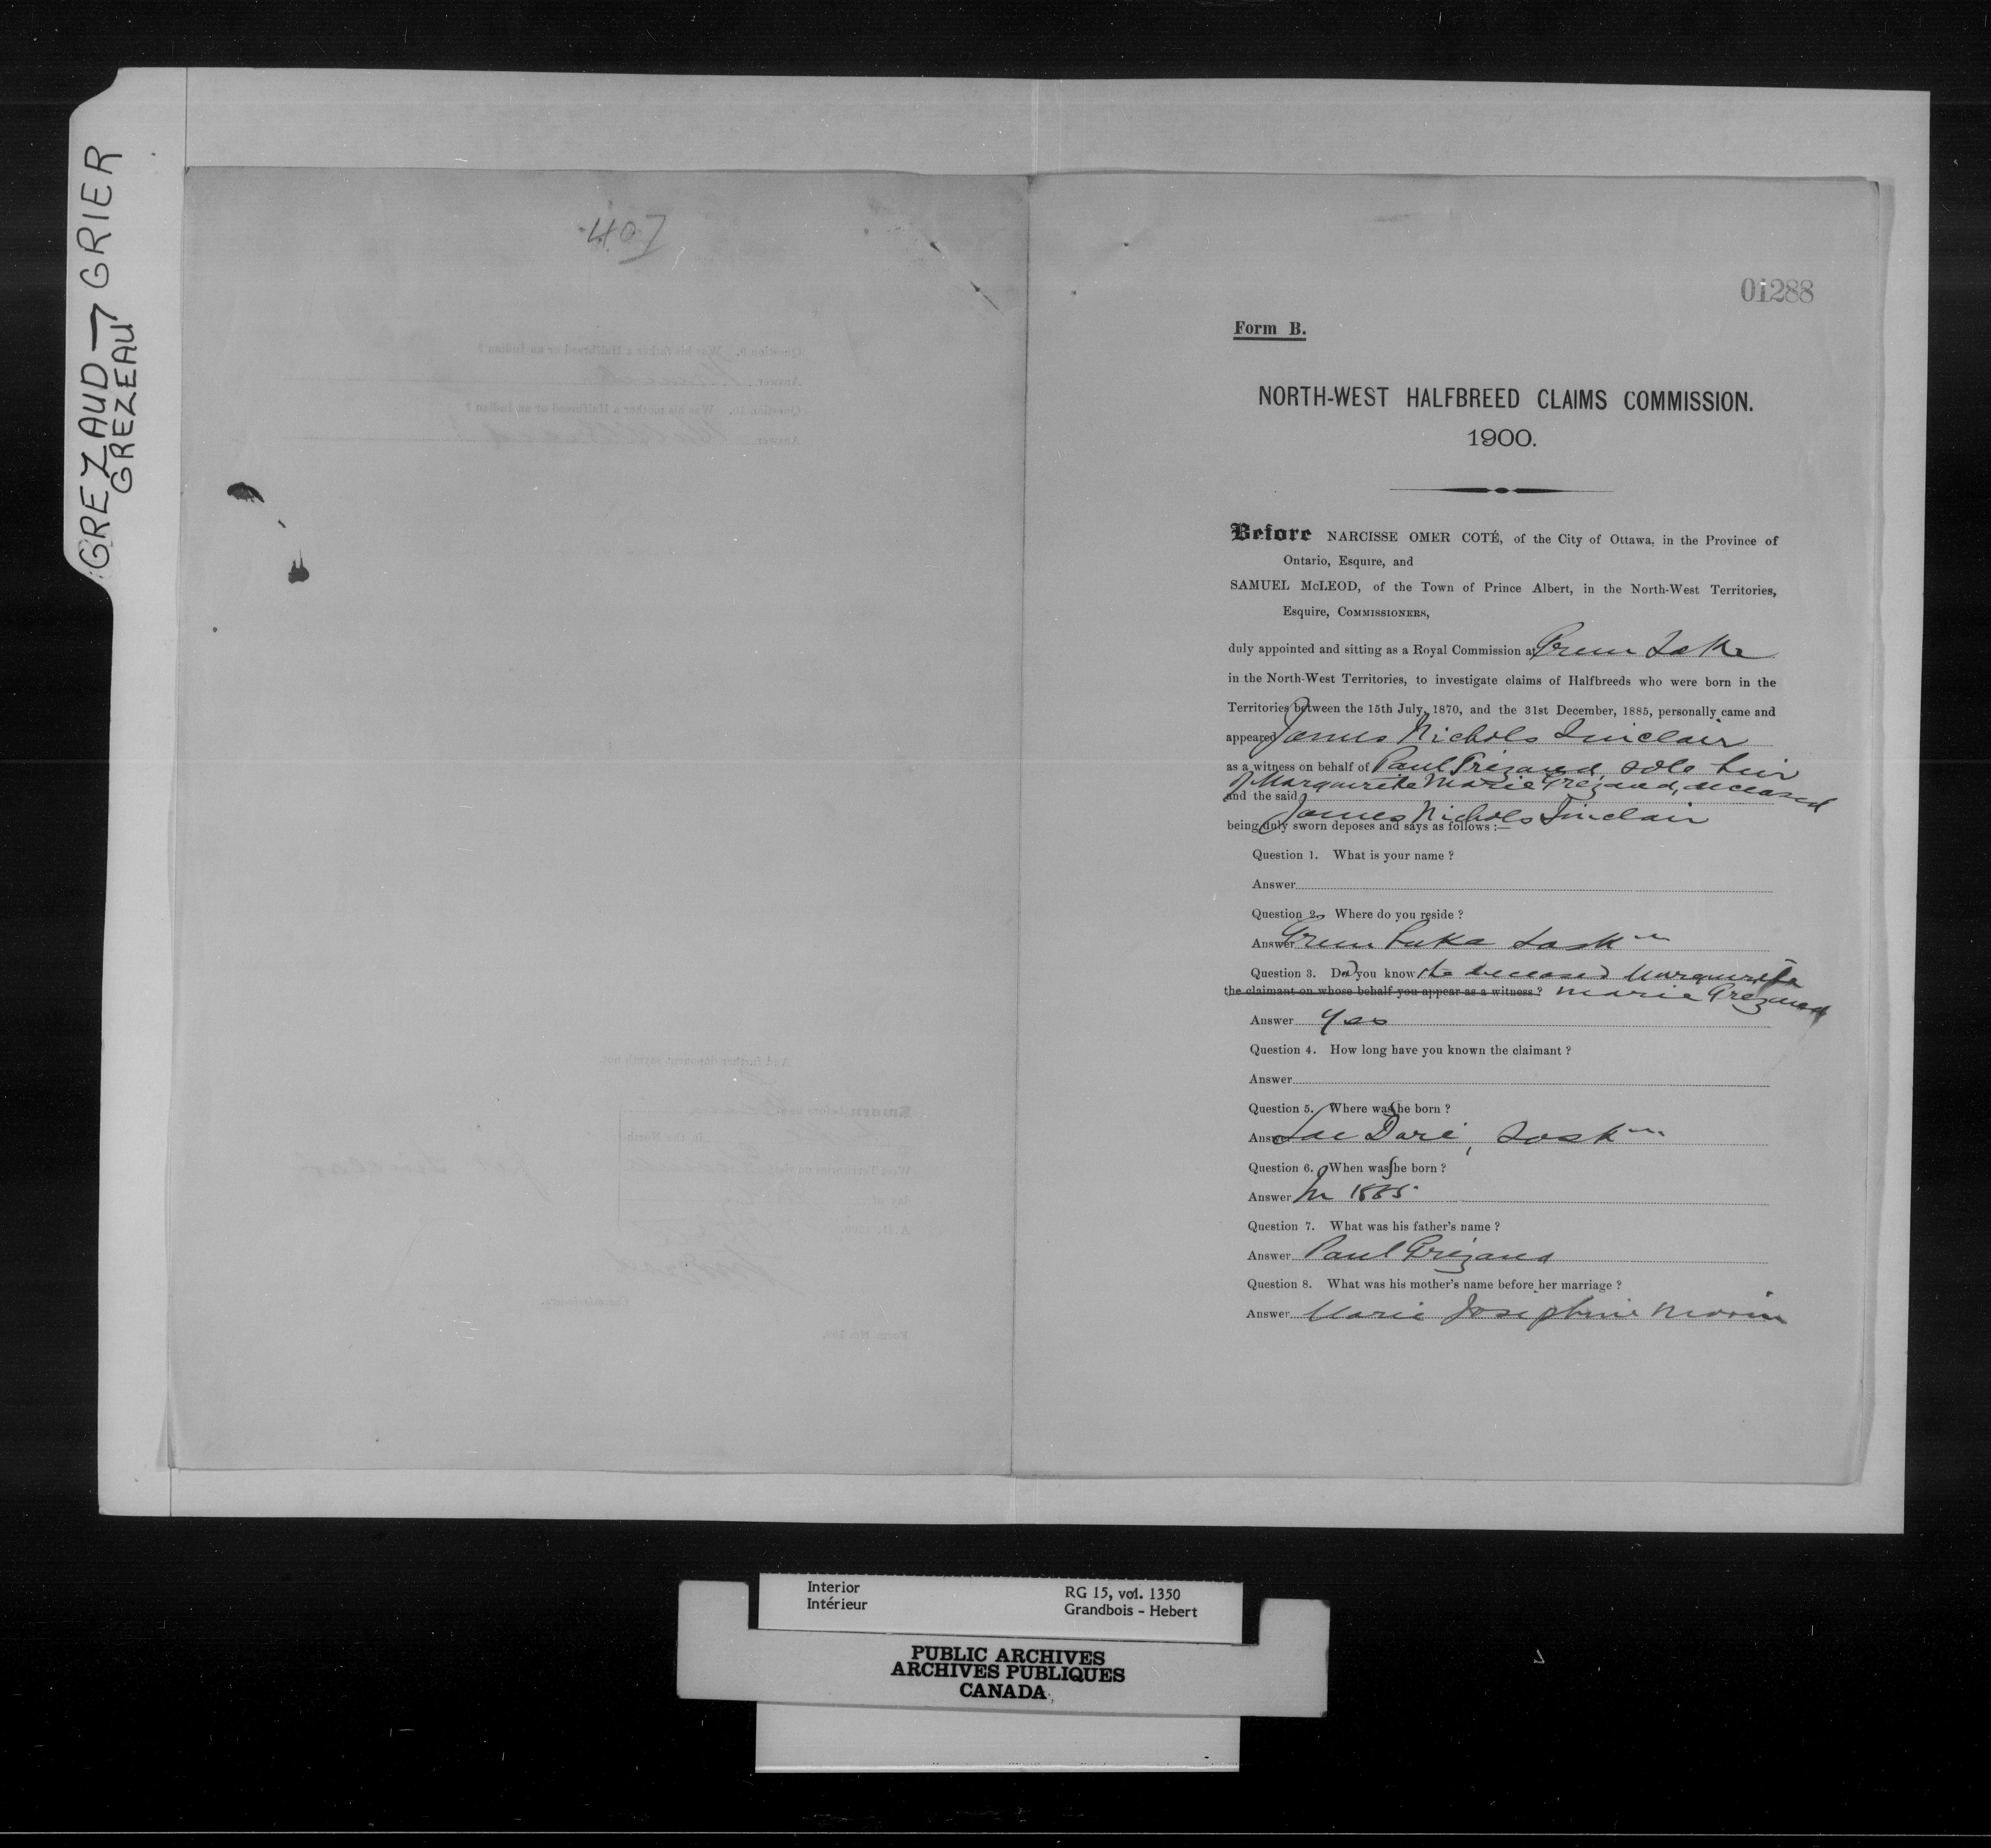 GREZAUD — GRIER
GREZEAU
407
01288
Form B.
NORTH-WEST HALFBREED CLAIMS COMMISSION.
1900.
Before NARCISSE OMER COTÉ, of the City of Ottawa, in the Province of
Ontario, Esquire, and
SAMUEL McLEOD, of the Town of Prince Albert, in the North-West Territories,
Esquire, COMMISSIONERS,
duly appointed and sitting as a Royal Commission at Green Lake
in the North-West Territories, to investigate claims of Halfbreeds who were born in the
Territories between the 15th July, 1870, and the 31st December, 1885, personally came and
appeared James Nichols Sinclair
as a witness on behalf of Paul Grézaud sole heir
of Marguerite Marie Grezaud, deceased
and the said
James Nichols Sinclair
being duly sworn deposes and says as follows :—
Question 1. What is your name ?
Answer
Question 2. Where do you reside ?
Answer Green Lake Sask
Question 3. Did you know the deceased Marguerite
the claimant on whose behalf you appear as a witness ? Marie Grezaud
Answer Yes
Question 4. How long have you known the claimant ?
Answer
Question 5. Where was she born ?
Answer Lac Doré, Sask
Question 6. When was she born ?
Answer In 1885
Question 7. What was his father's name ?
Answer Paul Grézaud
Question 8. What was his mother's name before her marriage ?
Answer Marie Josephine Morin
Question 9. Was his father a Halfbreed or an Indian ?
Answer
Question 10. Was his mother a Halfbreed or an Indian ?
Answer Halfbreed
And further deponent sayeth not.
Sworn before me at
in the North-
West Territories on the
day of
A.D. 1900.
Commissioner.
Interior
Intérieur
RG 15, vol. 1350
Grandbois - Hebert
PUBLIC ARCHIVES
ARCHIVES PUBLIQUES
CANADA